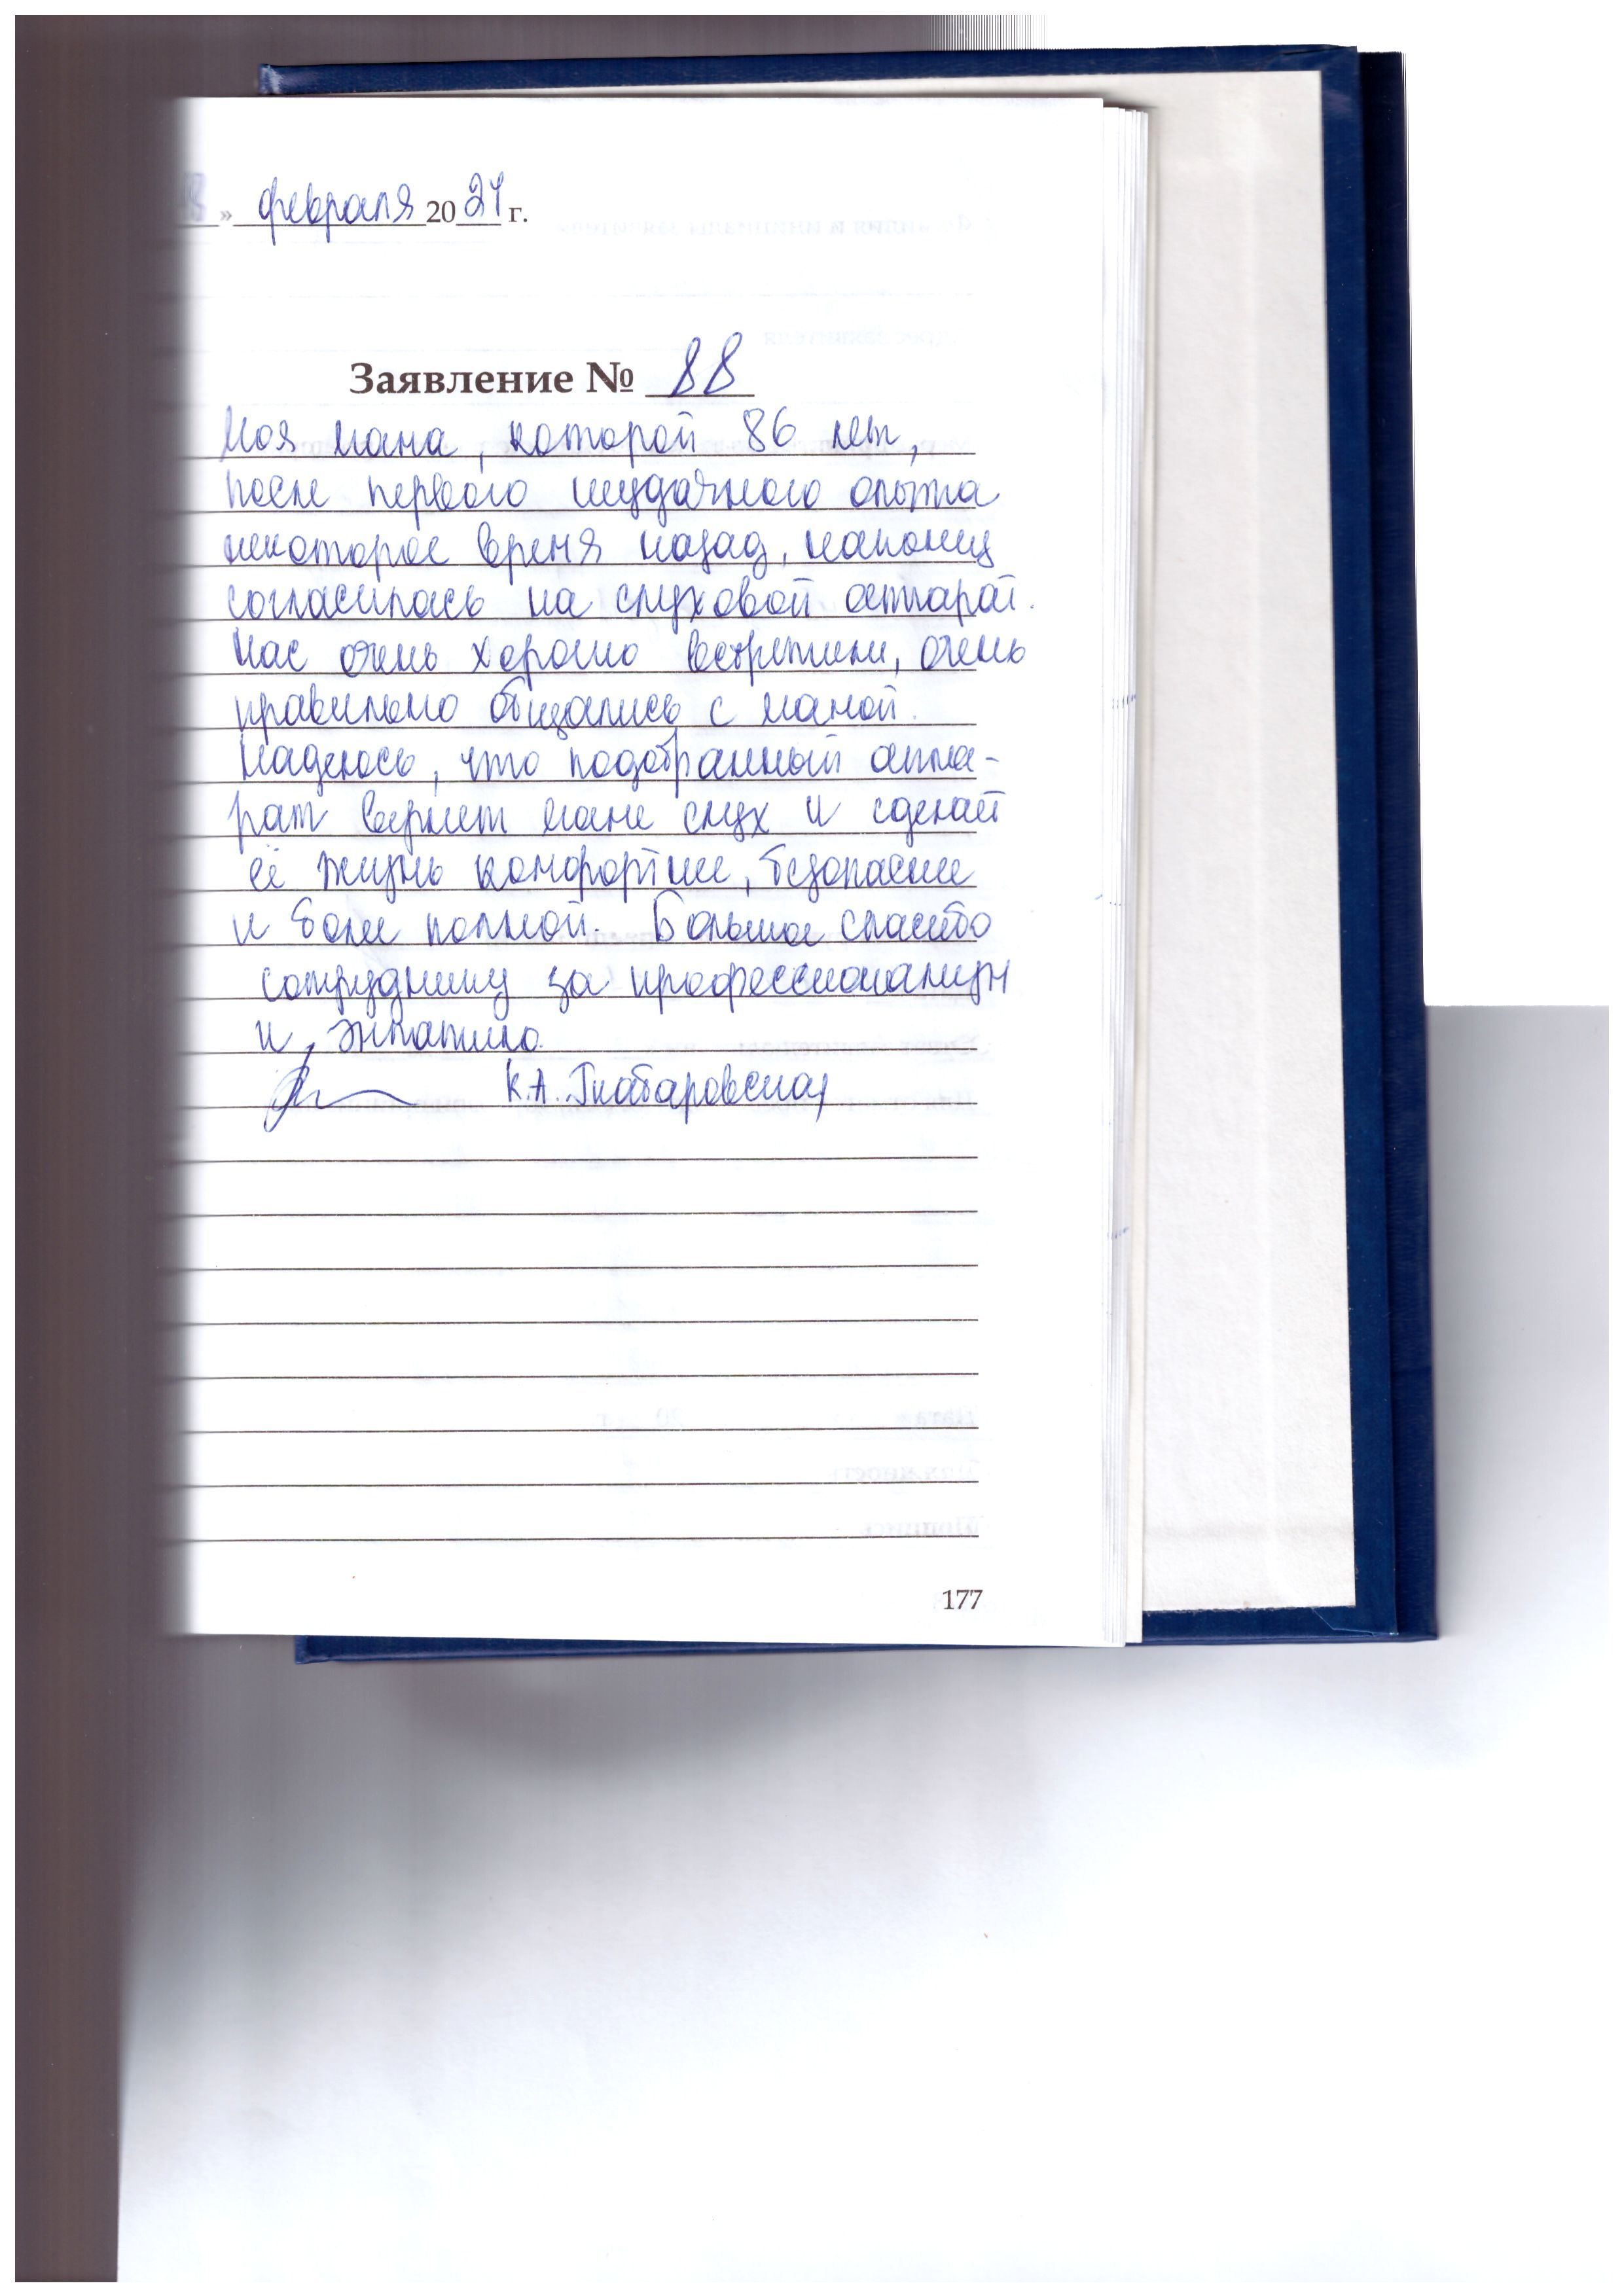 » февраля 2021 г.
Заявление № 88
Моя мама, которой 86 лет,
после первого неудачного опыта
некоторое время назад, наконец
согласилась на слуховой аппарат.
Нас очень хорошо встретили, очень
правильно общались с мамой.
Надеюсь, что подобранный аппа-
рат вернет маме слух и сделает
её жизнь комфортнее, безопаснее
и более полной. Большое спасибо
сотруднику за профессионализм
и эмпатию.
К.А.
177